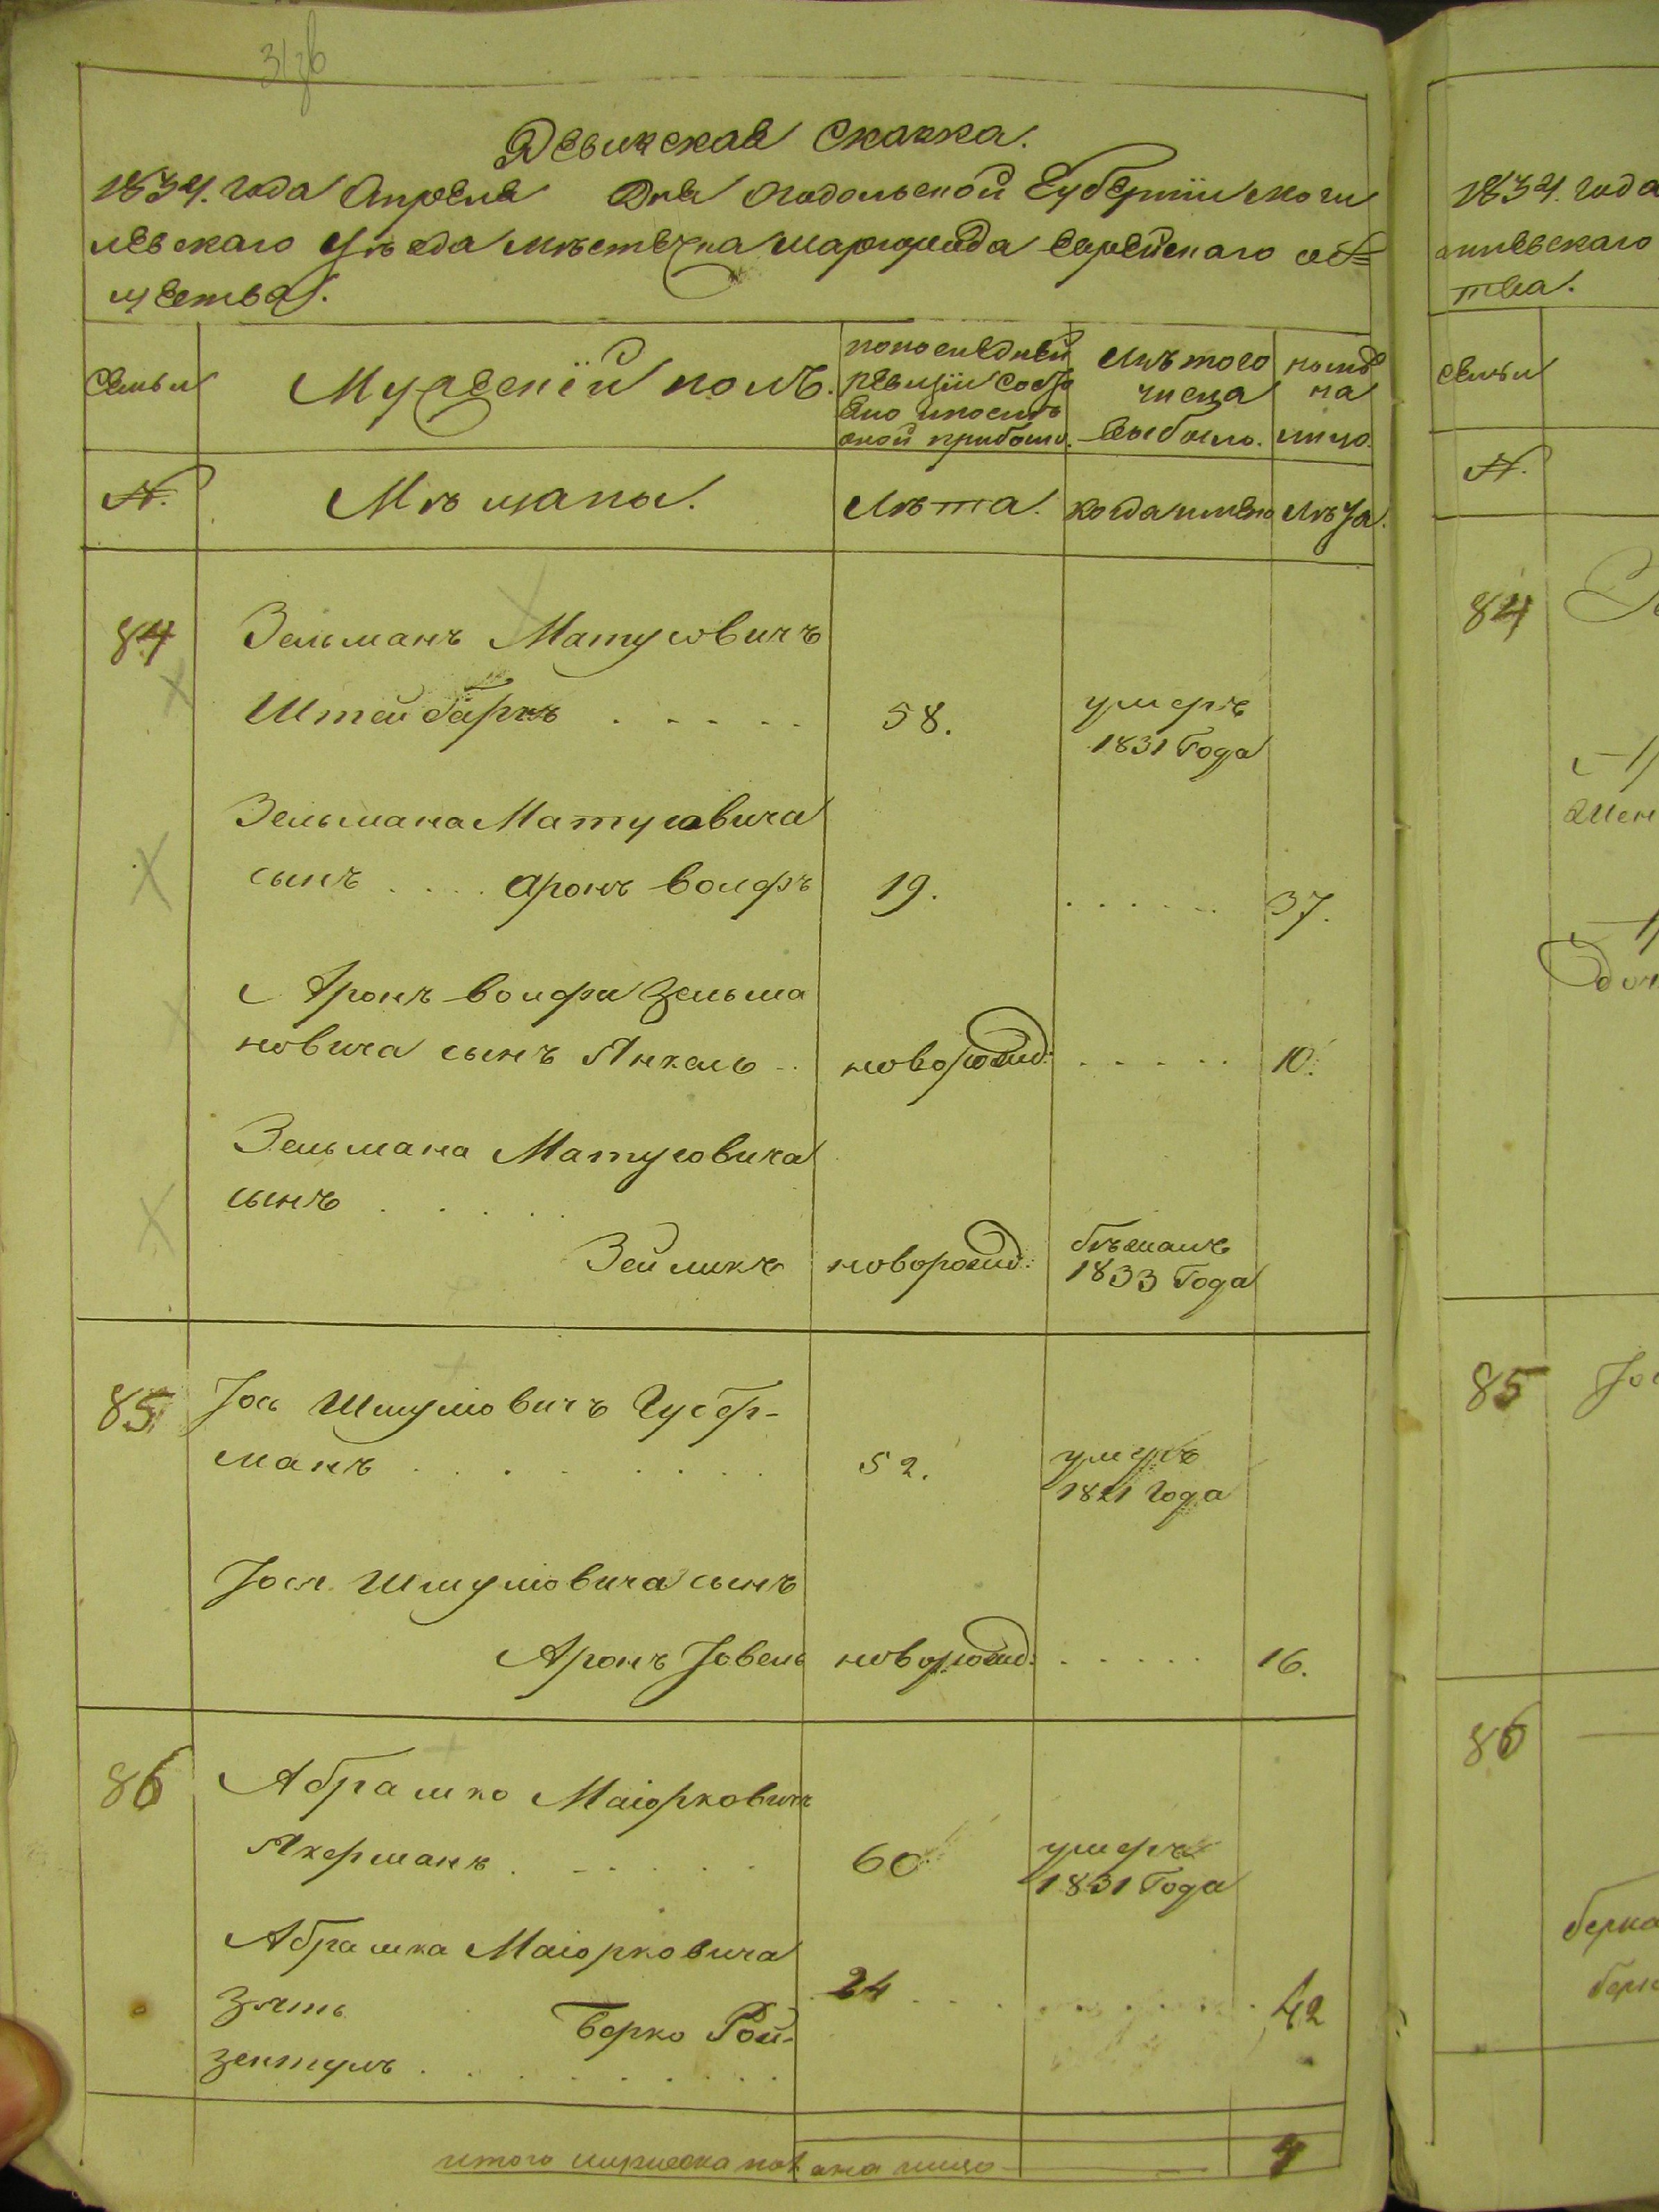 31 зв
Ревизская Сказка.
1834. года Апреля Дня Подольской Губернии Моги
левскаго Уѣзда Мѣстечка Шаргрода Еврейскаго об=
щества.
Семьи
Мужескій полъ.
по последней
ревизіи состо
яло и после
оной прибыло.
Изъ того
числа
выбыло.
ныне
на
лицо.
№.
Мѣщаны.
Лѣта.
когда имено
Лѣта.
84
Зельманъ Матусовичъ
Штейбаркъ
58.
умеръ
1831 Года
Зельмана Матусовича
сынъ Аронъ Волфъ
19.
37.
Аронъ Волфа Зельма
новича сынъ Янкель
новорожд:
10.
Зельмана Матусовича
сынъ
Зейликъ
новорожд:
бѣжалъ
1833 Года
85
Іось Шмулювичъ Гусер-
манъ
52.
умеръ
1821 Года
Іося Шмулювича сынъ
Аронъ Іовель
новорожд:
16.
86
Абрашко Маіорковичъ
Якерманъ
60
умеръ
1831 Года
Абрашка Маіорковича
зять Берко Рой-
зентулъ
24
42
итого мужеска пола на лицо
4
1834. года
левскаго
тва.
Семьи
№.
84
85
Іо
86
берка
берк